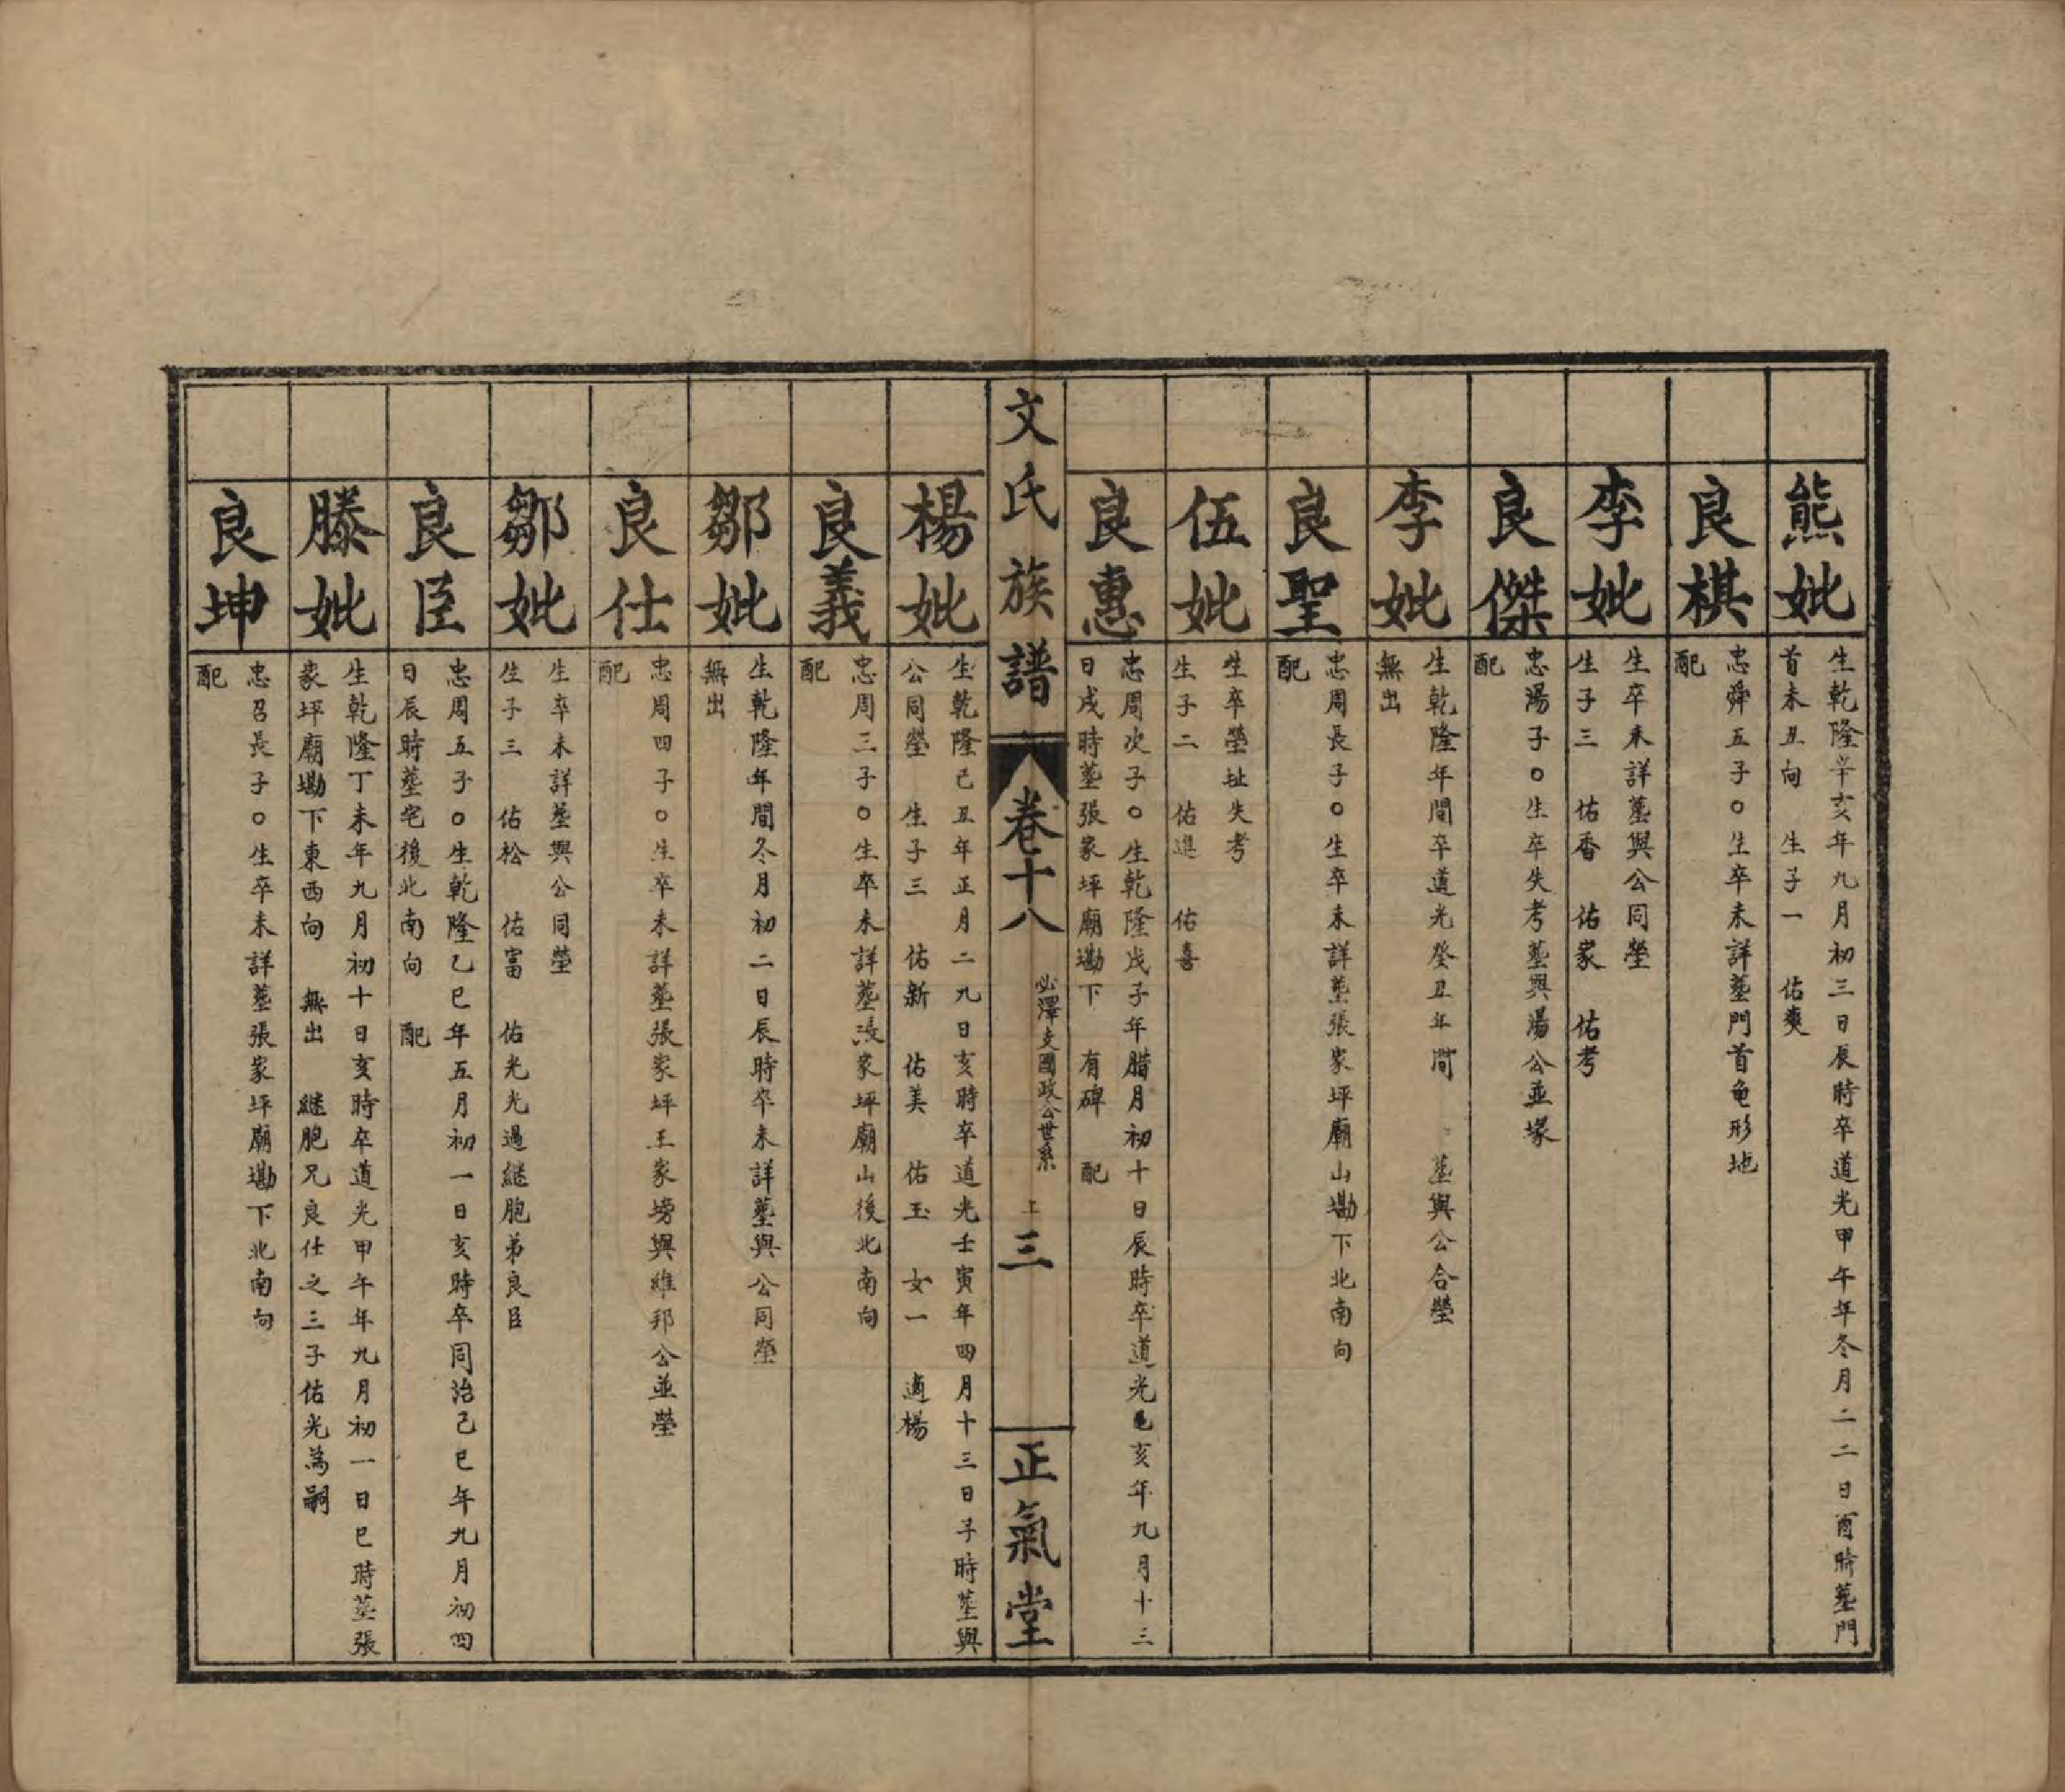 熊妣
生乾隆辛亥年九月初三日辰時卒道光甲午年冬月二二日酉時墓門
首未丑向　生子一　佑爽
良棋
忠舜五子○生卒未詳墓門首龟形地
配
李妣
生卒未詳墓與公同塋
生子三　佑香　佑家　佑考
良傑
忠湯子○生卒失考墓與湯公並塚
配
李妣
生乾隆年間卒道光癸丑年間　墓與公合塋
無出
良聖
忠周長子○生卒未詳墓張家坪廟山墈下北南向
配
伍妣
生卒塋址失考
生子二　佑進　佑喜
良惠
忠周次子○生乾隆戊子年腊月初十日辰時卒道光亥年九月十三
日戌時墓張家坪廟墈下　有碑　配
文氏族譜
卷十八
必澤支國政公世系　上
三
正氣堂
楊妣
生乾隆己丑年正月二九日亥時卒道光壬寅年四月十三日子時墓與
公同塋　生子三　佑新　佑美　佑玉　女一　適楊
良義
忠周三子○生卒未詳墓張家坪廟山後北南向
配
鄒妣
生乾隆年間冬月初二日辰時卒未詳墓與公同塋
無出
良仕
忠周四子○生卒未詳墓張家坪王家塝與維邦公並塋
配
鄒妣
生卒未詳墓與公同塋
生子三　佑松　佑富　佑光光過継胞弟良臣
良臣
忠周五子○生乾隆乙巳年五月初一日亥時卒同治己巳年九月初四
日辰時墓宅後北南向　配
滕妣
生乾隆丁未年九月初十日亥時卒道光甲午年九月初一日巳時墓張
家坪廟墈下東西向　無出　継胞兄良仕之三子佑光為嗣
良坤
忠召長子○生卒未詳墓張家坪廟墈下北南向
配